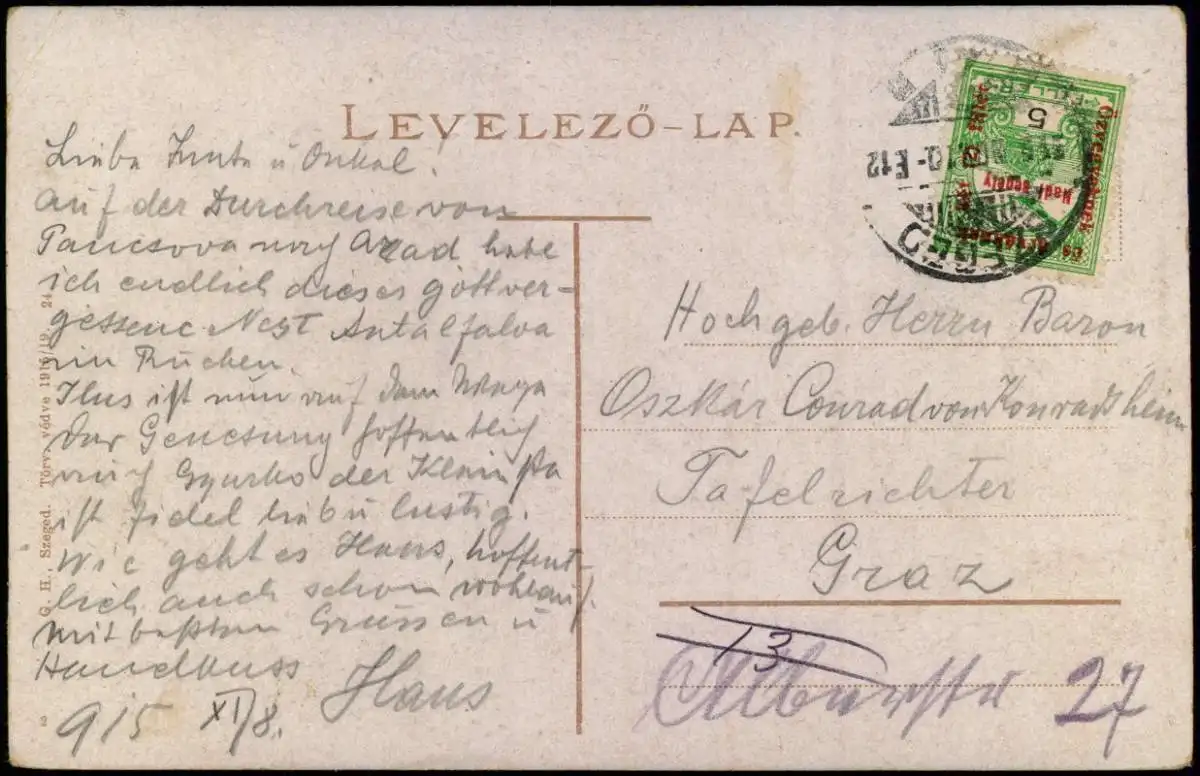 LEVELEZŐ-LAP.
Liebe Tante u Onkel!
Auf der Durchreise von
Pancsova nach Arad habe
ich endlich dieses gottver-
gessene Nest Antalfalva
im Rücken.
Ilus ist nun auf dem Wege
der Genesung hoffentlich
auch Gyurko der Kleinste
ist fidel lieb u lustig.
Wie geht es Hans, hoffent-
lich auch schon wohlauf.
Mit besten Grüssen u
Handkuss
Hans
915 XI/8.
G. H., Szeged. Törv. védve 1916/19. 24
Özvegyeknek
és árváknak
két fillér
Hadi segély
FILLER
5
Hochgeb. Herrn Baron
Oszkár Conrad von Konradsheim
Tafelrichter
Graz
13
27